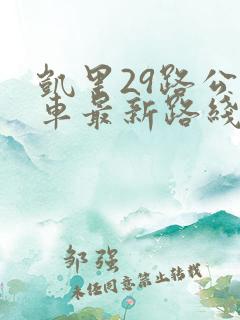 凱里29路公
車最新路綫
邹强
未经同意禁止转载